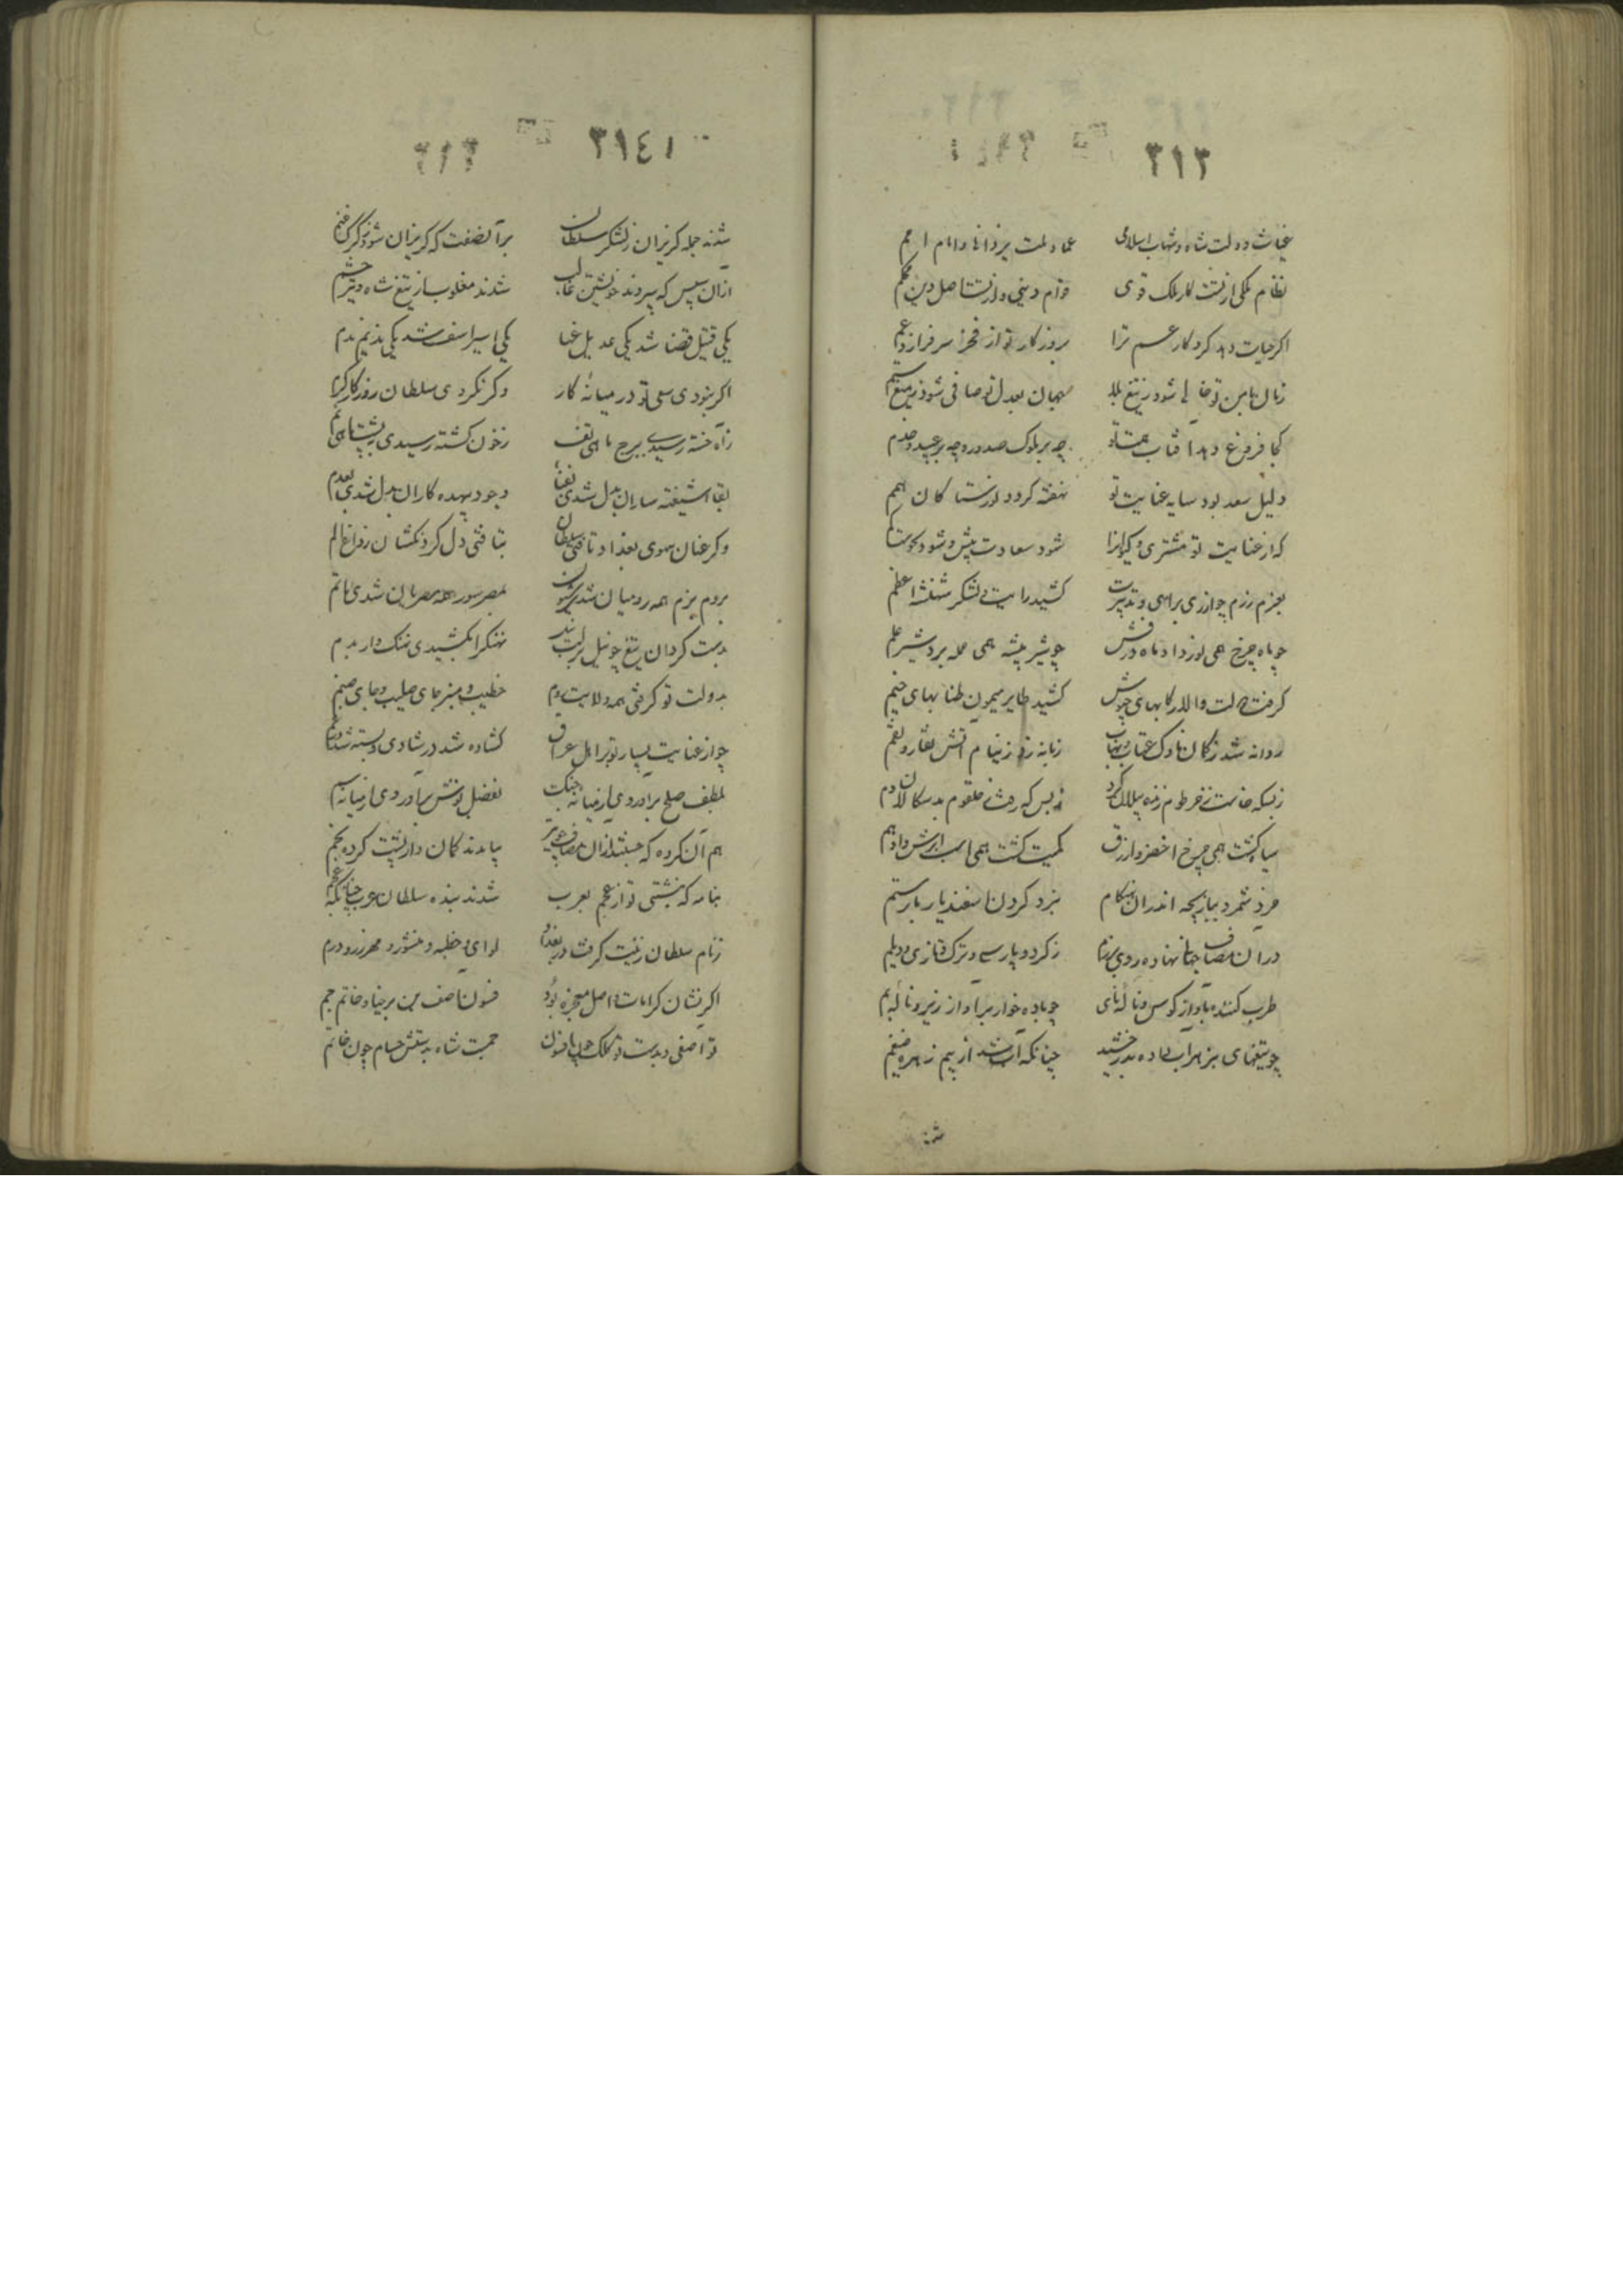 ٣١٣
غیاث دولت شاه و شهاب اسلامی عماد ملت یزدانی و امام امم
نظام ملکی از تست کار ملک قوی قوام دینی و از تست اصل دین محکم
اگر حیات دهد کردگار عسم ترا بروزکار تو از فخر سرفرازد عم
زمان بامن تو خالی شود ز تیغ بلا جهان بعدل تو صافی شود ز میغ ستم
کجا فروغ دهد آفتاب همت تو چه بر ملوک و صدور و چه بر عبید و خدم
دلیل سعد بود سایه عنایت تو نهفته کردد
که از عنایت تو مشتری و کیوانرا شود سعادت بیش و شود نحوست کم
بعزم رزم چو از ری براهی و تدبیرت کشید رایت و لشکر شهنشه اعظم
چو ماه چرخ همی نور داد ماه درفش چو شیر بیشه همی حمله برد شیر علم
گرفت دولت والا رکابهای جیوش کشید طایر میمون طنابهای خیم
روانه شد ز کمان ناوک عقاب و نهاب زبانه زد ز نیام آتش بقا و نقم
زبسکه خاست ز خرطوم زنده پیلان کرد ز بس که رفت ز حلقوم بدسکالان دم
سیاه کشت همی چرخ اخضر و ازرق کمیت کشت همی اسب ابرش و ادهم
خرد شمرد ببازیچه اندران هنگام نبرد کردن اسفندیار با رستم
در آن مصاف جهانی نهاده روی برزم ز کرد و پارسی و ترک و تازی و دیلم
طرب کننده بآواز کوس و نالهٔ نای چو باده خوار بر آواز زیر و نالهٔ بم
چو تیغهای بزهر آب داده بدرخشید چنانکه آب شد از بیم زهره ضیغم
شد
٣١٤١
شدند جمله گریزان ز لشکر سلطان بر آن صفت که گریزان شود ز گرگ غنم
از آن سپس که ببودند خویشتن غالب شدند مغلوب از تیغ شاه و تیر حشم
یکی قتیل قضا شد یکی عدیل عنا یکی اسیر اسف شد یکی ندیم ندم
اگر نبودی سعی تو در میانهٔ کار وگر نکردی سلطان روزگار کرم
ز آه خسته رسیدی ببرج ماهی تف ز خون کشته رسیدی بپشت ماهی نم
بقای شیفته ساران بدل شدی بفنا وجود بیهده کاران بدل شدی بعدم
وگر عنان سوی بغداد تافتی سلطان بتافتی دل گردنکشان ز داغ الم
بروم بزم همه رومیان شدی شیون بمصر سور همه مصریان شدی ماتم
بدست گردان تیغ چو نیل بر لب نیل نهنگ را بکشیدی نهنگ وار بدم
بدولت تو گرفتی همه ولایت روم خطیب و منبر جای صلیب و جای صنم
چو از عنایت بسیار تو بر اهل عراق گشاده شد در شادی و بسته شد در غم
بلطف صلح برآوردی از میانهٔ جنگ بفضل نوش برآوردی از میانهٔ سم
هم آن گروه که جستند از آن مصاف چو تیر بیامدند کمان وار پشت کرده بخم
بنامه که نبشتی تو از عجم بعرب شدند بنده سلطان عرب چنانکه عجم
ز نام سلطان زینت گرفت در بغداد لوای و خطبه و منشور و مهر زر و درم
اگر نشان کرامات و اصل معجزه بود فسون آصف بن برخیا و خاتم جم
تو آصفی و بدست تو کلک چون افسون جمست شاه بدستش حسام چون خاتم